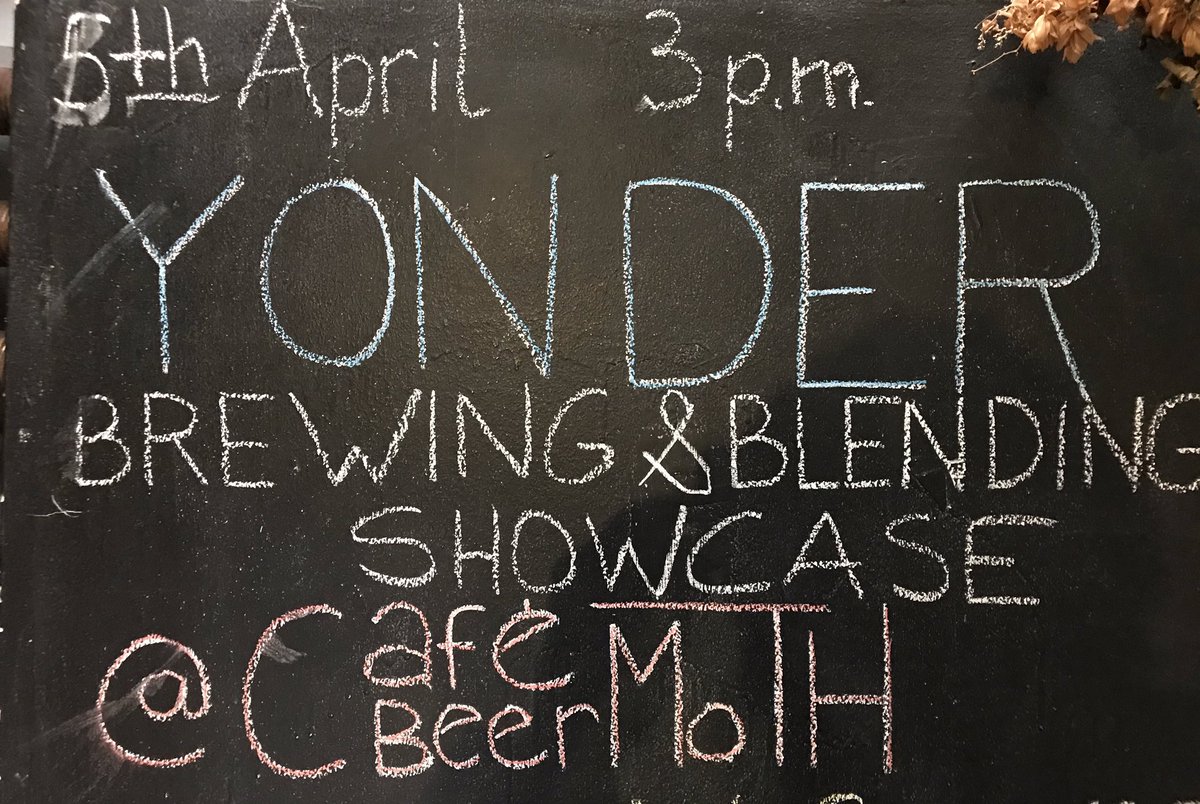 5th April 3p.m.
YONDER
BREWING & BLENDING
SHOWCASE
@ Café Beer MoTH